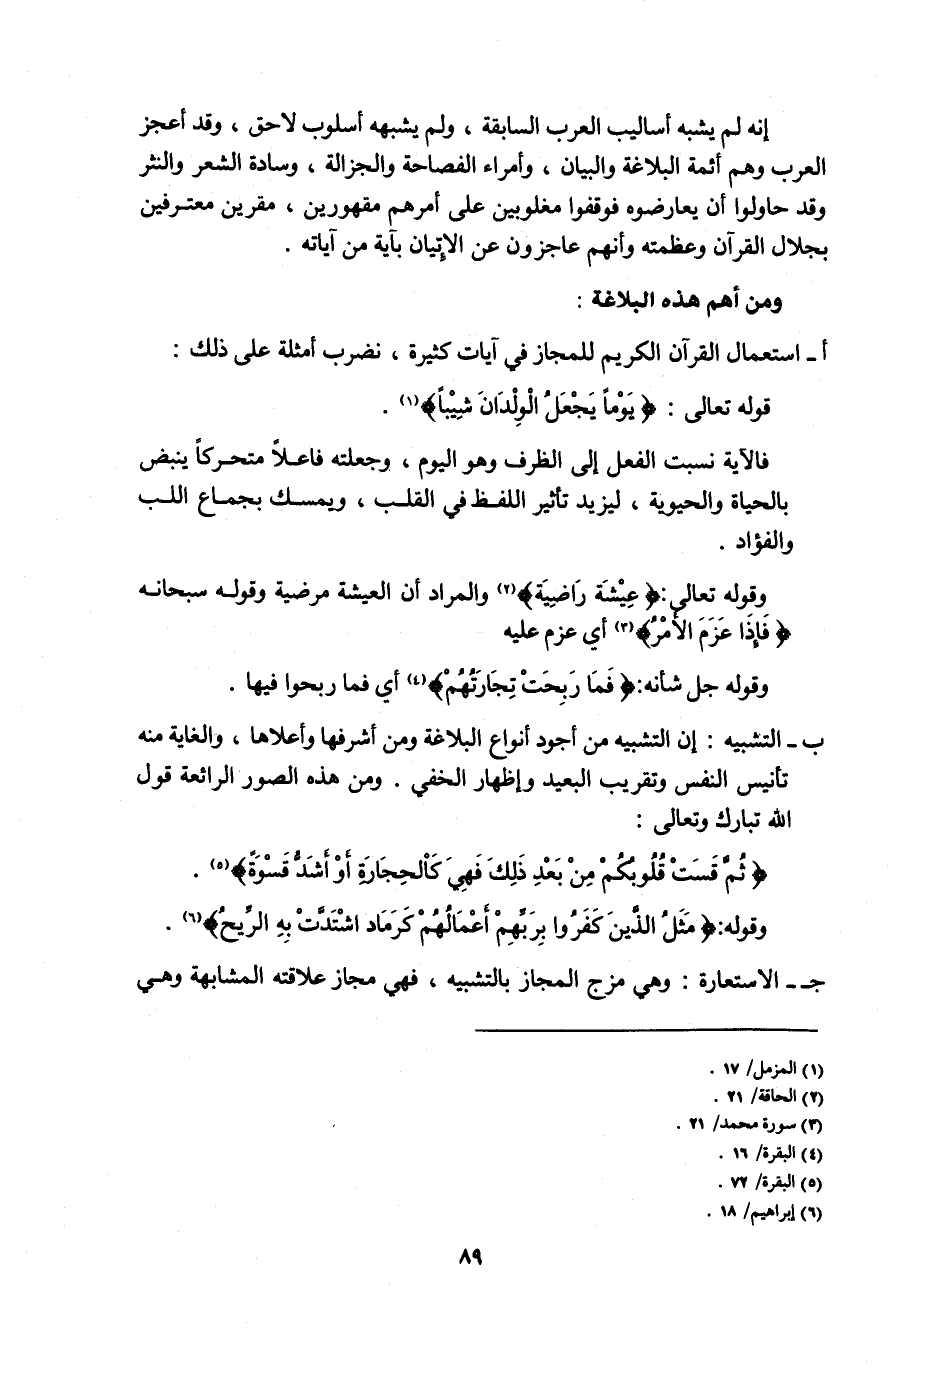 إنه لم يشبه أساليب العرب السابقة ، ولم يشبهه أسلوب لاحق ، وقد أعجز
العرب وهم أئمة البلاغة والبيان ، وأمراء الفصاحة والجزالة ، وسادة الشعر والنثر
وقد حاولوا أن يعارضوه فوقفوا مغلوبين على أمرهم مقهورين ، مقرين معترفين
بجلال القرآن وعظمته وأنهم عاجزون عن الإتيان بآية من آياته .
ومن أهم هذه البلاغة :
أ ـ استعمال القرآن الكريم للمجاز في آيات كثيرة ، نضرب أمثلة على ذلك :
قوله تعالى : ﴿ يَوْماً يَجْعَلُ الْوِلْدَانَ شِيْباً﴾(١) .
فالآية نسبت الفعل إلى الظرف وهو اليوم ، وجعلته فاعلاً متحركاً ينبض
بالحياة والحيوية ، ليزيد تأثير اللفظ في القلب ، ويمسك بجماع اللب
والفؤاد .
وقوله تعالى:﴿ عِيْشَة رَاضِيَة﴾(٢) والمراد أن العيشة مرضية وقوله سبحانه
﴿ فَإِذَا عَزَمَ الأَمْرُ﴾(٣) أي عزم عليه
وقوله جل شأنه:﴿ فَمَا رَبِحَتْ تِجَارَتُهُمْ﴾(٤) أي فما ربحوا فيها .
ب ـ التشبيه : إن التشبيه من أجود أنواع البلاغة ومن أشرفها وأعلاها ، والغاية منه
تأنيس النفس وتقريب البعيد وإظهار الخفي . ومن هذه الصور الرائعة قول
الله تبارك وتعالى :
﴿ ثُمَّ قَسَتْ قُلُوبُكُمْ مِنْ بَعْدِ ذَلِكَ فَهِيَ كَالْحِجَارَةِ أَوْ أَشَدُّ قَسْوَةً﴾(٥) .
وقوله:﴿ مَثَلُ الذَّينَ كَفَرُوا بِرَبِّهِمْ أَعْمَالُهُمْ كَرَمَاد اشْتَدَّتْ بِهِ الرِّيحُ﴾(٦) .
جـ ـ الاستعارة : وهي مزج المجاز بالتشبيه ، فهي مجاز علاقته المشابهة وهي
(١) المزمل/ ١٧ .
(٢) الحاقة/ ٢١ .
(٣) سورة محمد/ ٢١ .
(٤) البقرة/ ١٦ .
(٥) البقرة/ ٧٢ .
(٦) إبراهيم/ ١٨ .
٨٩